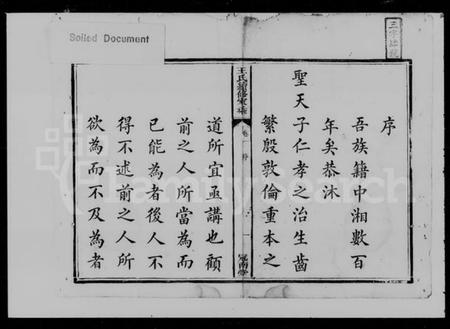 Soiled Document
序
吾族籍中湘數百
年矣恭沐
聖天子仁孝之治生齒
繁殷敦倫重本之
王氏續修家乘
卷一 序
一
道所宜亟講也顧
前之人所當為而
已能為者後人不
得不述前之人所
欲為而不及為者
FamilySearch